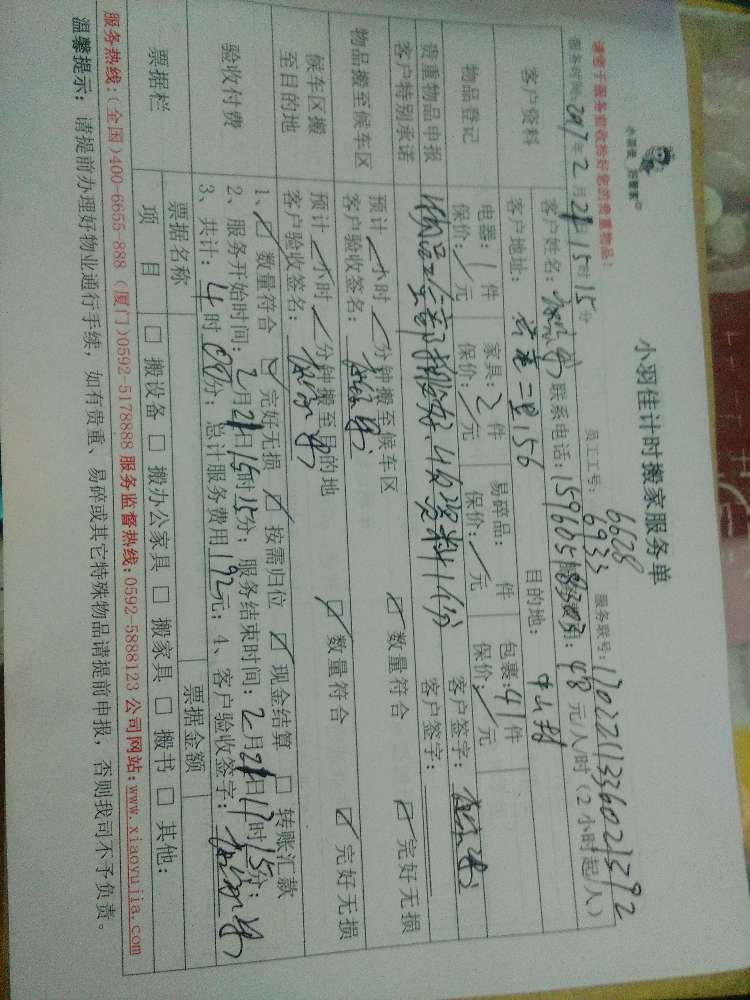 小羽佳 好管家
小羽佳计时搬家服务单
请您于服务前收拾好您的贵重物品！
员工工号：6628 6933 服务账号：
服务时间：2017年2月21日15时15分
服务费用：48元/人/时（2小时起/人）
客户资料
客户姓名： 联系电话：
客户地址：二里156 目的地：中山
物品登记
电器：1件 家具：2件 易碎品： 件 包裹：41件
保价：/元 保价：/元 保价：/元 保价：/元
客户签字：
贵重物品申报
客户特别承诺
物品全部 客户签字：
物品搬至候车区
预计/小时/分钟搬至候车区 ☑数量符合 ☑完好无损
客户验收签名：
候车区搬至目的地
预计/小时/分钟搬至目的地 ☑数量符合 ☑完好无损
客户验收签名：
验收付费
1、☑数量符合 ☑完好无损 ☑按需归位 ☑现金结算 □转账汇款
2、服务开始时间：2月21日15时15分；服务结束时间：2月21日17时15分；
3、共计：4时00分；总计服务费用192元；4、客户验收签字：
票据栏
票据名称 票据金额
项目 □搬设备 □搬办公家具 □搬家具 □搬书 □其他：
服务热线：（全国）400-6655-888（厦门）0592-5178888 服务监督热线：0592-5888123 公司网站：www.xiaoyujia.com
温馨提示：请提前办理好物业通行手续，如有贵重、易碎或其它特殊物品请提前申报，否则我司不予负责。